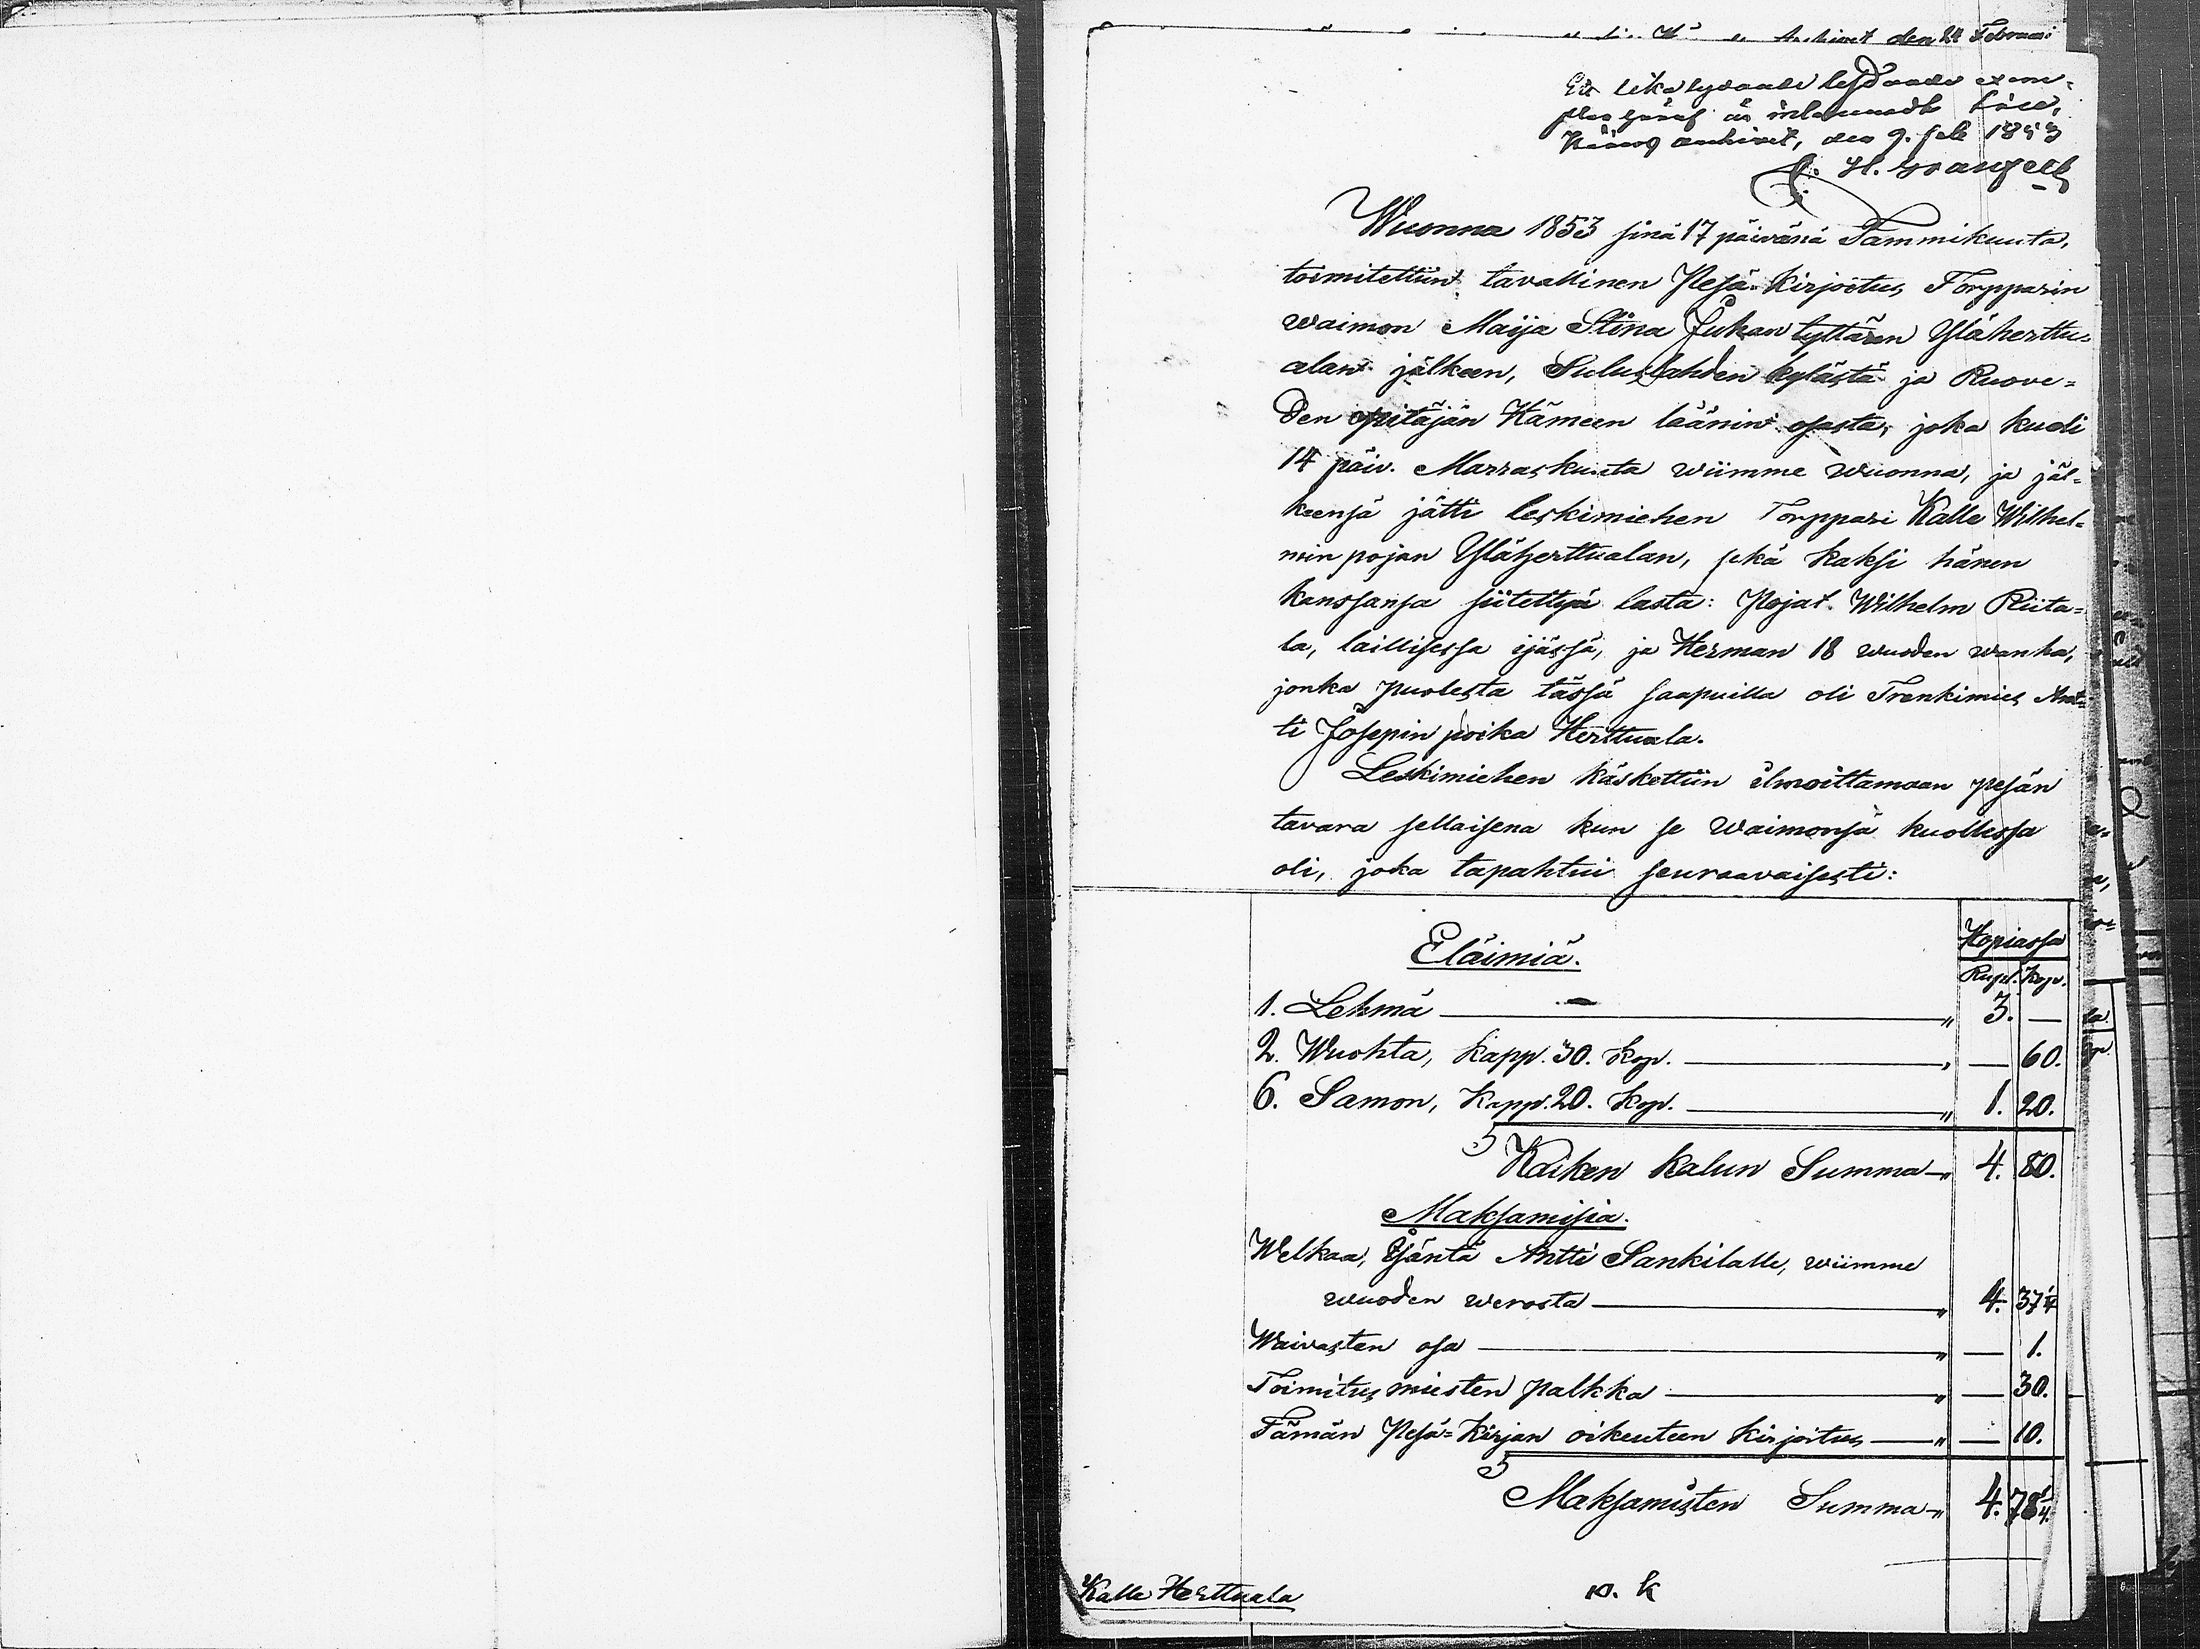 den 24 Februari
Ett lika lydande exem-
plar häraf är inlemnadt
archivet, den 9. feb 1853
H.
Wuonna 1853 sinä 17 päivänä Tammikuuta,
toimitettiin tavallinen Pesä-Kirjoitus Torpparin
waimon Maija Stina Juhan tyttären Yläherttu-
alan jälkeen, Suluslahden kylästä ja Ruove-
den pitäjän Hämeen läänin osasta, joka kuoli
14 päiv. Marraskuuta wiimme wuonna, ja jäl-
keensä jätti leskimiehen Torppari Kalle Wilhel-
min pojan Yläherttualan, sekä kaksi hänen
kanssansa siitettyä lasta: Pojat Wilhelm Riita-
la, laillisessa ijässä, ja Herman 18 wuoden wanha,
jonka puolesta tässä saapuilla oli Trenkimies Ant-
ti Josepin poika Herttuala.
Leskimiehen käskettiin ilmoittamaan pesän
tavara sellaisena kun se waimonsa kuollessa
oli, joka tapahtui seuraavaisesti:
Hopiassa
Eläimiä.
Rupl. Kop.
1. Lehmä — " 3. —
2. Wuohta, kapp. 30. kop. — " — 60.
6. Lamon, kapp. 20. kop. — " 1. 20.
Kaiken kalun Summa — " 4. 80.
Maksamisia.
Welkaa, Isäntä Antti Sankilalle, wiimme
wuoden werosta — " 4. 37 1/4
Waivasten osa — " — 1.
Toimitus miesten palkka — " — 30.
Tämän Pesä-Kirjan oikeuteen kirjoitus — " — 10.
Maksamisten Summa — " 4. 78 1/4.
Kalle Herttuala
w. k